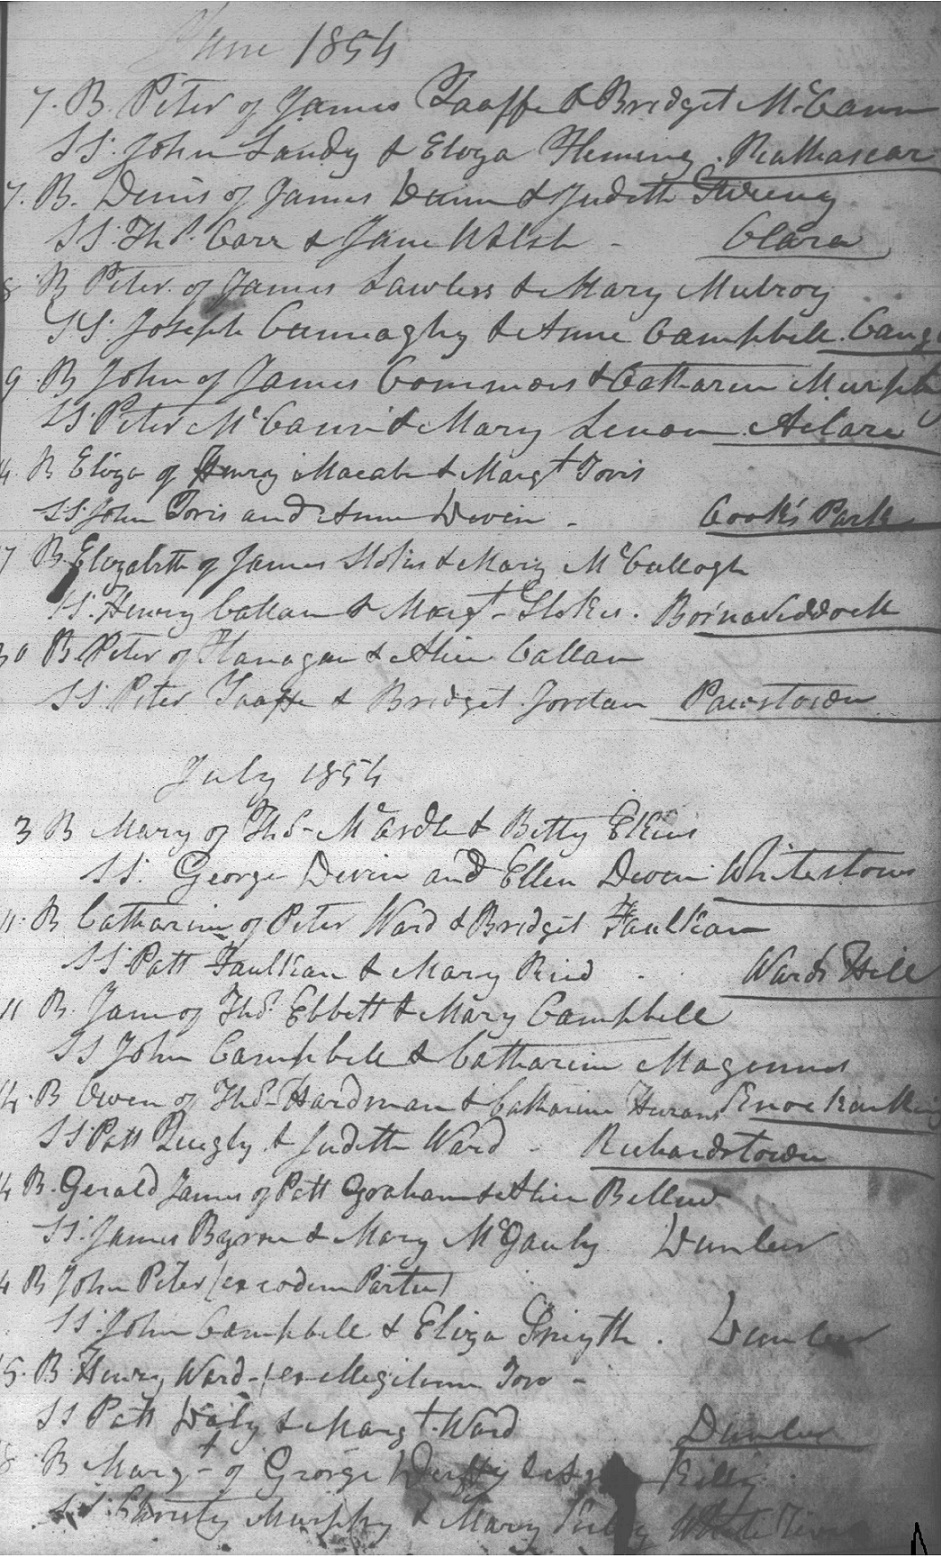 June 1854
7. B. Peter of James Taaffe & Bridget McCann
SS. John Landy & Eliza Fleming. Rathascar
7. B. Denis of James Dunn & Judith
SS. Ths. Carr & Jane Walsh - Clara
8 B Peter of James Lawless & Mary Mulroy
SS. Joseph & Anne Campbell.
9 B John of James Commons & Catharine Murphy
SS. Peter McCann & Mary Lennon Aclare
B Eliza of Henry Macabe & Margt Toris
SS. John Toris and Anne Devin - Cook's Park
B Elizabeth of James Stokes & Mary McCullogh
SS. Henry Callan & Margt Stokes.
30 B. Peter of Flanagan & Alice Callan
SS. Peter Taaffe & Bridget Jordan Pairstown
July 1854
3 B Mary of Ths McArdle & Betty Elkins
SS. George Devin and Ellen Devin Whitestown
11. B Catharine of Peter Ward & Bridget Faulkan
SS Patt Faulkan & Mary Reid - Wards Hill
11 B. Jane of Ths. Ebbett & Mary Campbell
SS John Campbell & Catharine Magennis
14. B Owen of Ths. Hardman & Catharine
SS Patt Quigly & Judith Ward - Richardstown
14 B. Gerald James of Patt Graham & Alice Bellew
SS. James Byrne & Mary McGauly Dunleer
14 B John Peter (ex eodem Partu)
SS. John Campbell & Eliza Smyth. Dunleer
15. B. Henry Ward -
SS Patt Daly & Margt Ward Dunleer
8 B Margt of George Duffy & Reilly
SS. Christy Murphy & Mary White River